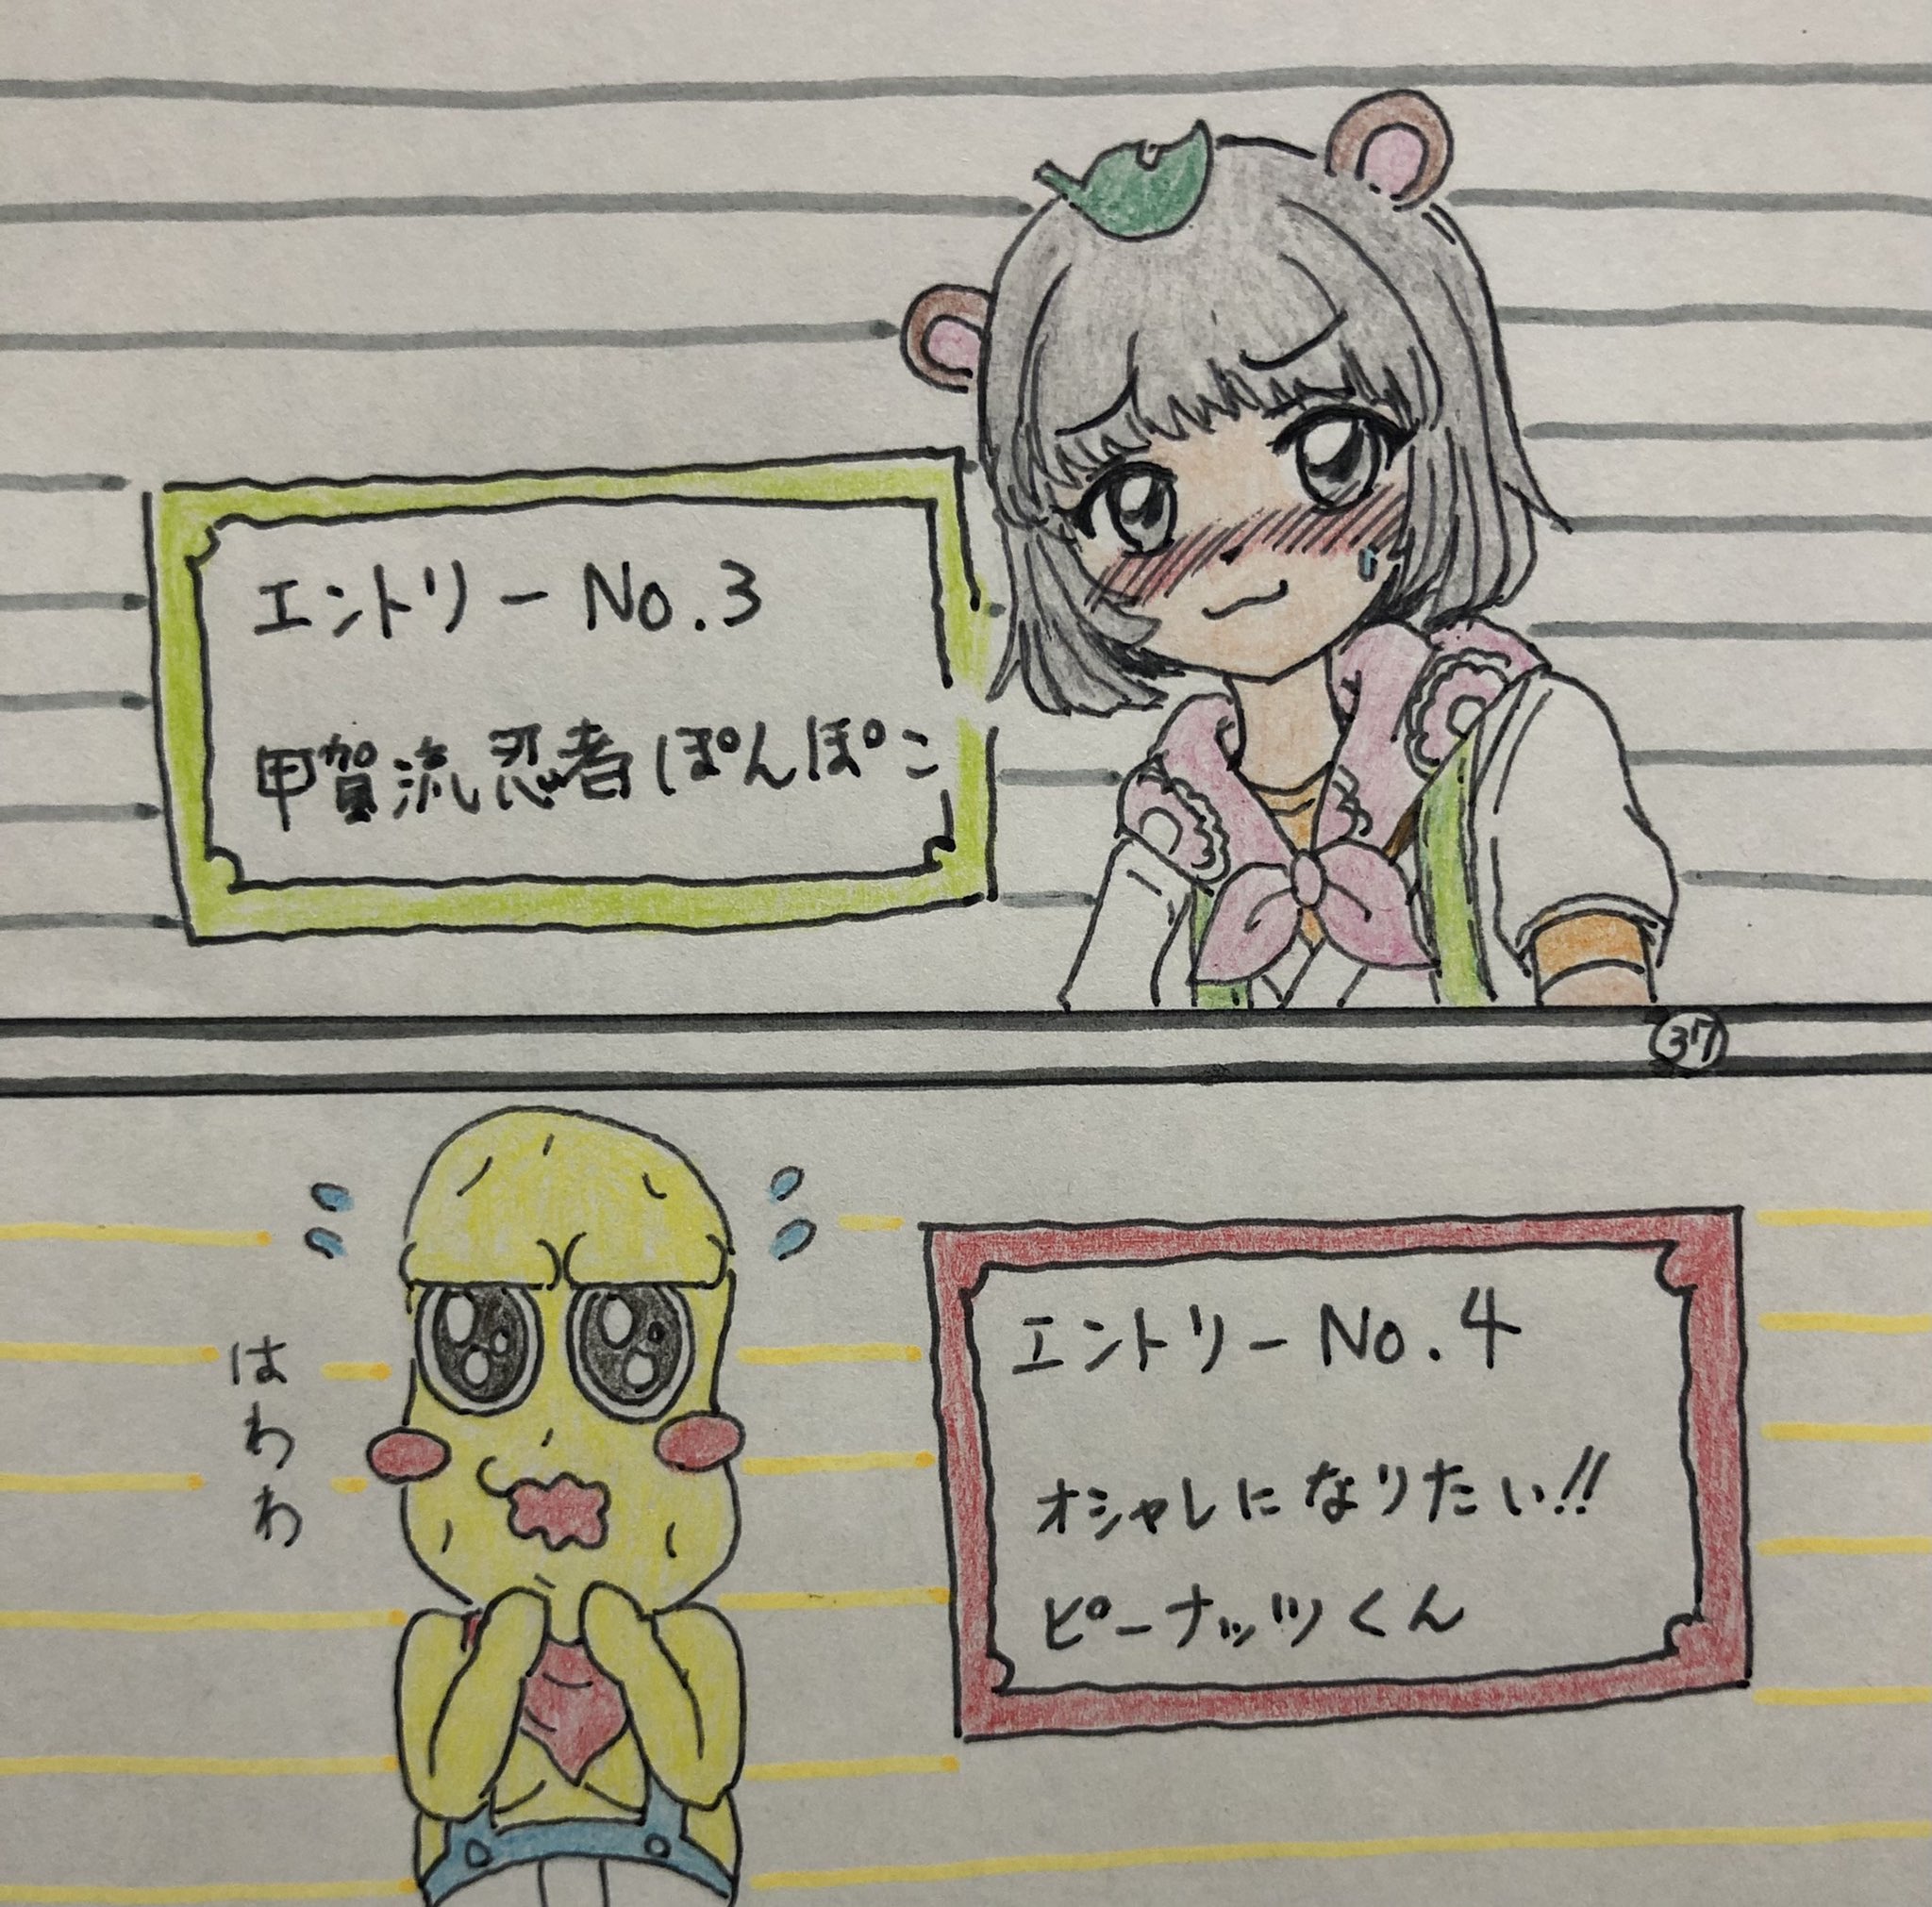 エントリー No.3
甲賀流忍者ぽんぽこ
37
はわわ
エントリー No.4
オシャレになりたい!!
ピーナッツくん